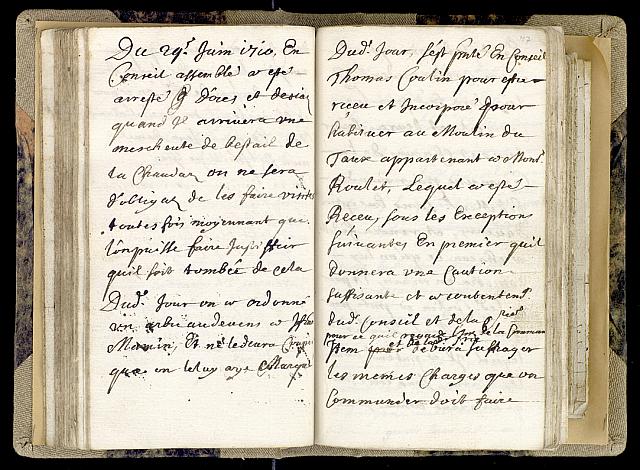 Du 29.e Juin 1710, En
Conseil assemblé a esté
arresté q d'ores et desia
quand Il arrivera une
mescheute de bestail de
la Chaudan on ne sera
d'obligat de les faire visiter
toutes fois moyennant que
l'on puisse faire Justifier
qu'il soit tombée de cela
Dud. Jour on a ordonné
un arbre au devens a
Monin, Et ne le devra Couper
que on le luy aye Marqué
47
Dud. Jour, s'est pnté En Conseil
Thomas Coulin pour estre
receu et Incorporé pour
habituer au Moulin du
Taux appartenant a Mons.
Roulet, Lequel a esté
Receu, sous les Exceptions
suivantes En premier qu'il
donnera une Caution
suffisante et a contentem.t
dud. Conseil et de la
pour ce qui de la Commun
et
Item devra suffrager
les mesmes Charges que un
Communier doit faire